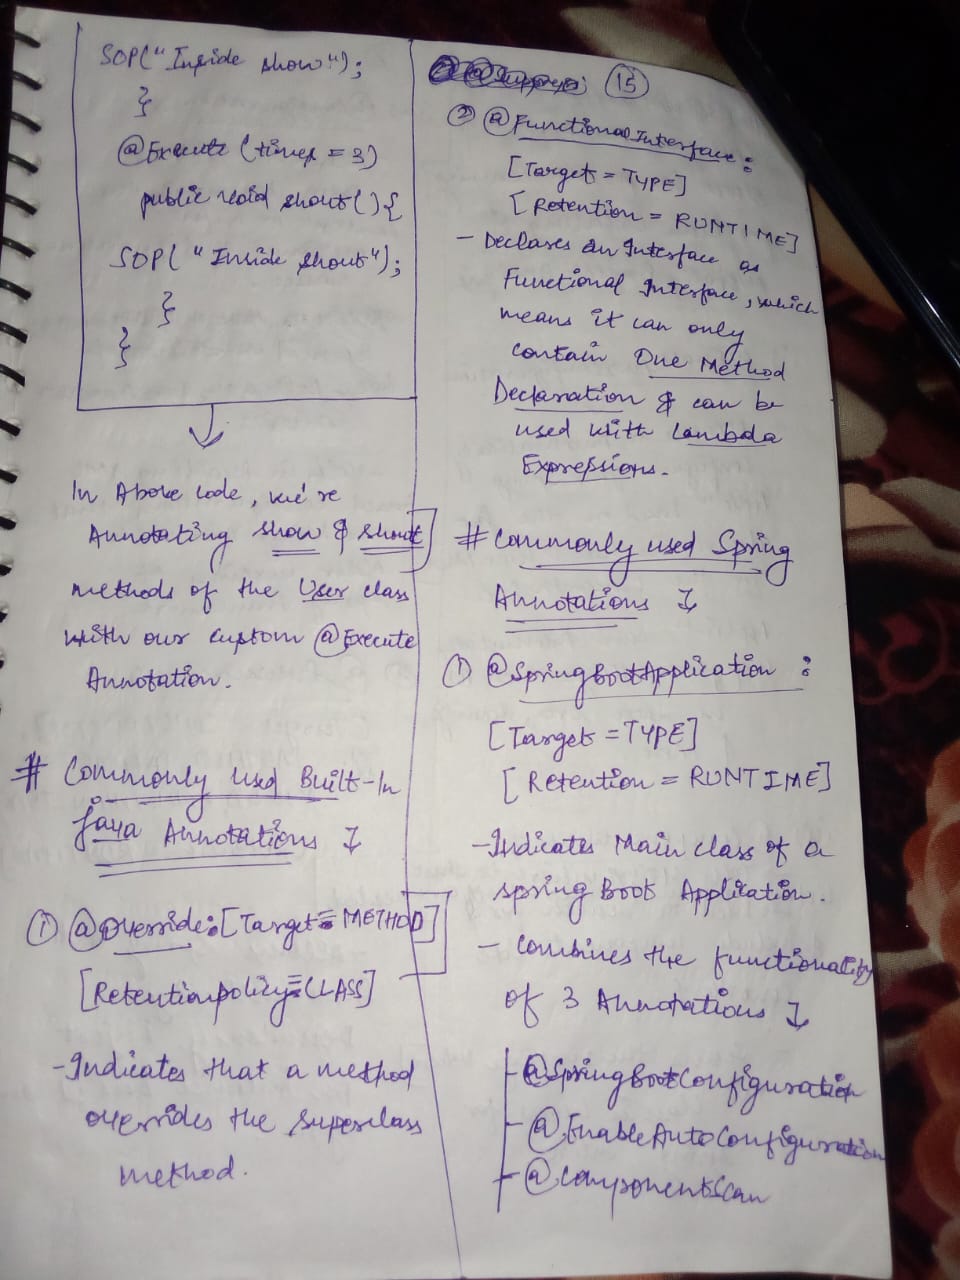 SOP("Inside show");
}
@Execute (times = 3)
public void shout() {
SOP( "Inside shout");
}
}
In Above code, we're
Annotating show & shout
methods of the User class
with our custom @Execute
Annotation.
# Commonly used Built-In
Java Annotations ↓
① @Override: [Target = METHOD]
[Retentionpolicy = CLASS]
- Indicates that a method
overrides the superclass
method.
15
② @FunctionalInterface :
[Target = TYPE]
[ Retention = RUNTIME]
- Declares an Interface as
Functional Interface, which
means it can only
contain One Method
Declaration & can be
used with Lambda
Expressions.
# Commonly used Spring
Annotations ↓
① @SpringBootApplication :
[Target = TYPE]
[ Retention = RUNTIME]
- Indicates Main class of a
spring Boot Application.
- combines the functionality
of 3 Annotations ↓
- @SpringBootConfiguration
- @EnableAutoConfiguration
- @ComponentScan